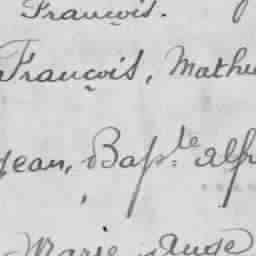 François.
François, Mathu
Jean, Bapte alf
Marie Ange